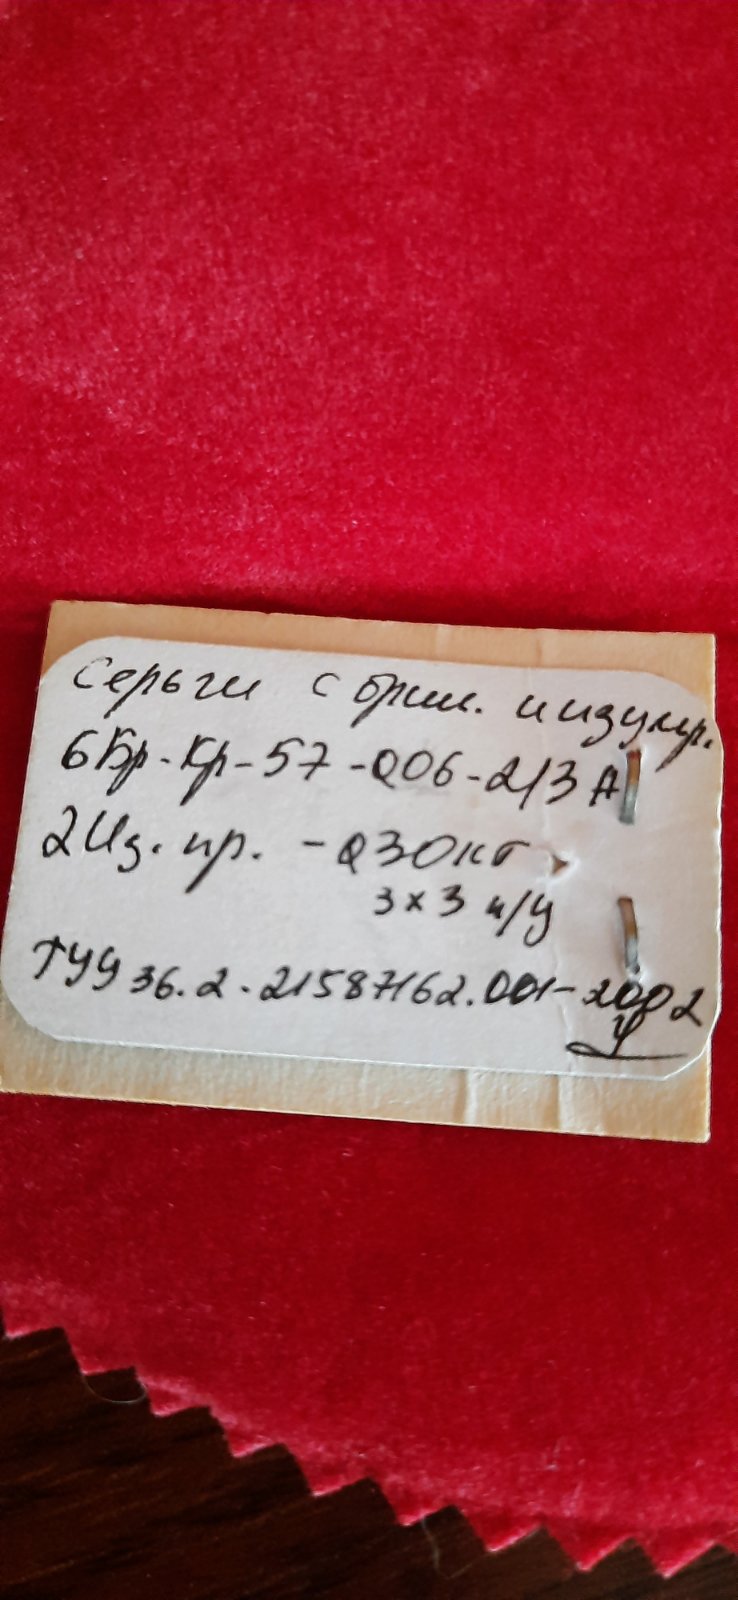 Серьги с брил. и изумр.
6Бр-Кр-57-0,06-2/3А
2Из. пр. - 0,30кт
3х3 н/у
ТУУ 36.2-21587162.001-2002